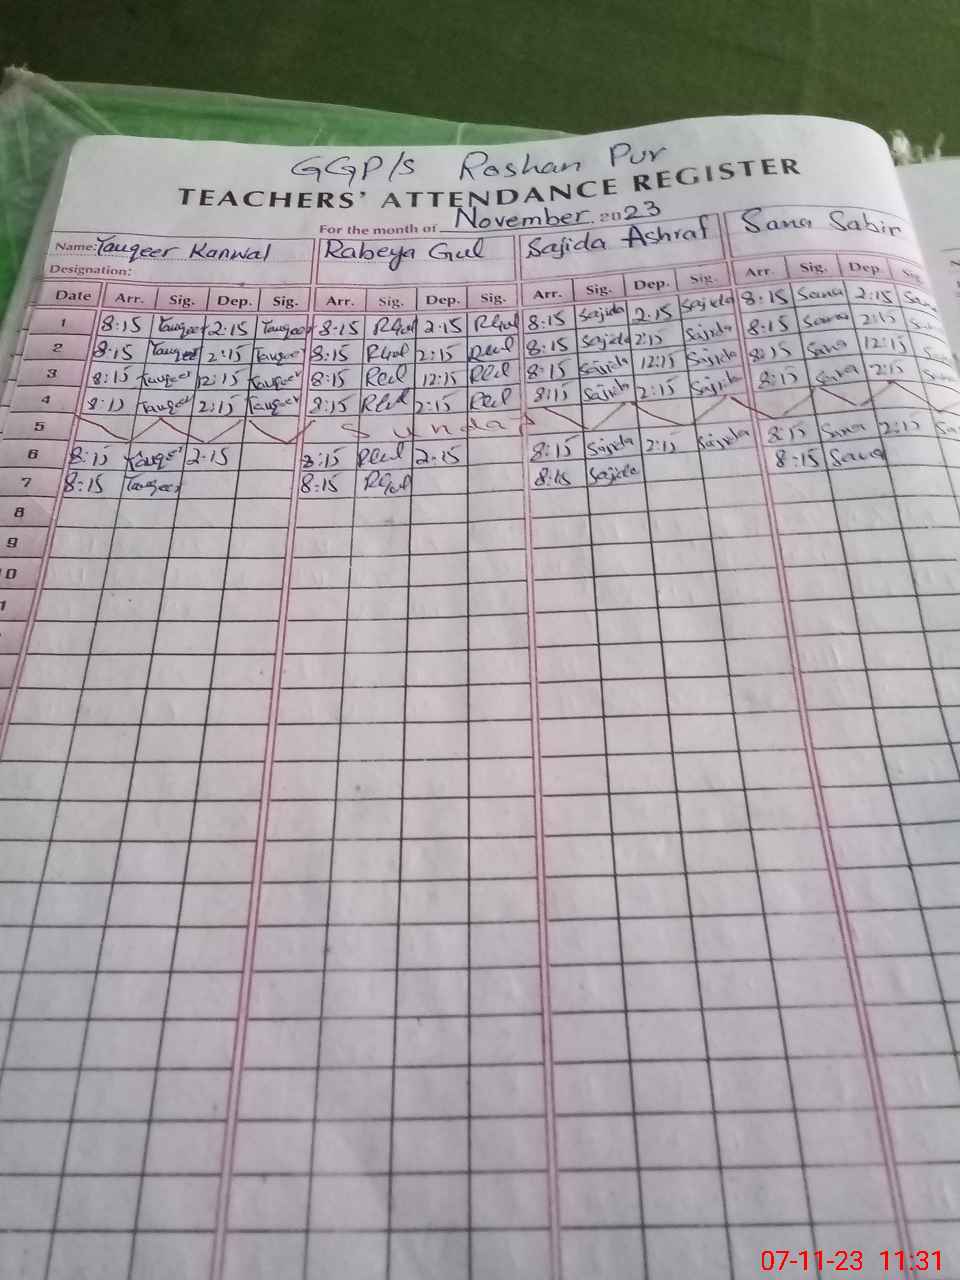 GGP/s Roshan Pur
TEACHERS' ATTENDANCE REGISTER
For the month of November 2023
Name: Tauqeer Kanwal Rabeya Gul Sajida Ashraf Sana Sabir
Designation:
Date Arr. Sig. Dep. Sig. Arr. Sig. Dep. Sig. Arr. Sig. Dep. Sig. Arr. Sig. Dep. Sig.
1 8:15 Tauqeer 2:15 Tauqeer 8:15 RGul 2:15 RGul 8:15 Sajida 2:15 Sajida 8:15 Sana 2:15 Sana
2 8:15 Tauqeer 2:15 Tauqeer 8:15 RGul 2:15 RGul 8:15 Sajida 2:15 Sajida 8:15 Sana 2:15 Sana
3 8:15 Tauqeer 12:15 Tauqeer 8:15 RGul 12:15 RGul 8:15 Sajida 12:15 Sajida 8:15 Sana 12:15 Sana
4 8:15 Tauqeer 2:15 Tauqeer 8:15 RGul 2:15 RGul 8:15 Sajida 2:15 Sajida 8:15 Sana 2:15 Sana
5 Sunday
6 8:15 Tauqeer 2:15 8:15 RGul 2:15 8:15 Sajida 2:15 Sajida 8:15 Sana 2:15 Sa
7 8:15 Tauqeer 8:15 RGul 8:15 Sajida 8:15 Sana
8
9
0
1
07-11-23 11:31